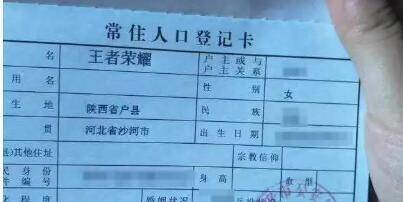 常住人口登记卡
名 王者荣耀 户主或与
户主关系
用名 性别 女
生地 陕西省户县 民族
贯 河北省沙河市 出生日期
县)其他住址 宗教信仰
民身份
件编号 身高 血型
化程度 婚姻状况 兵役